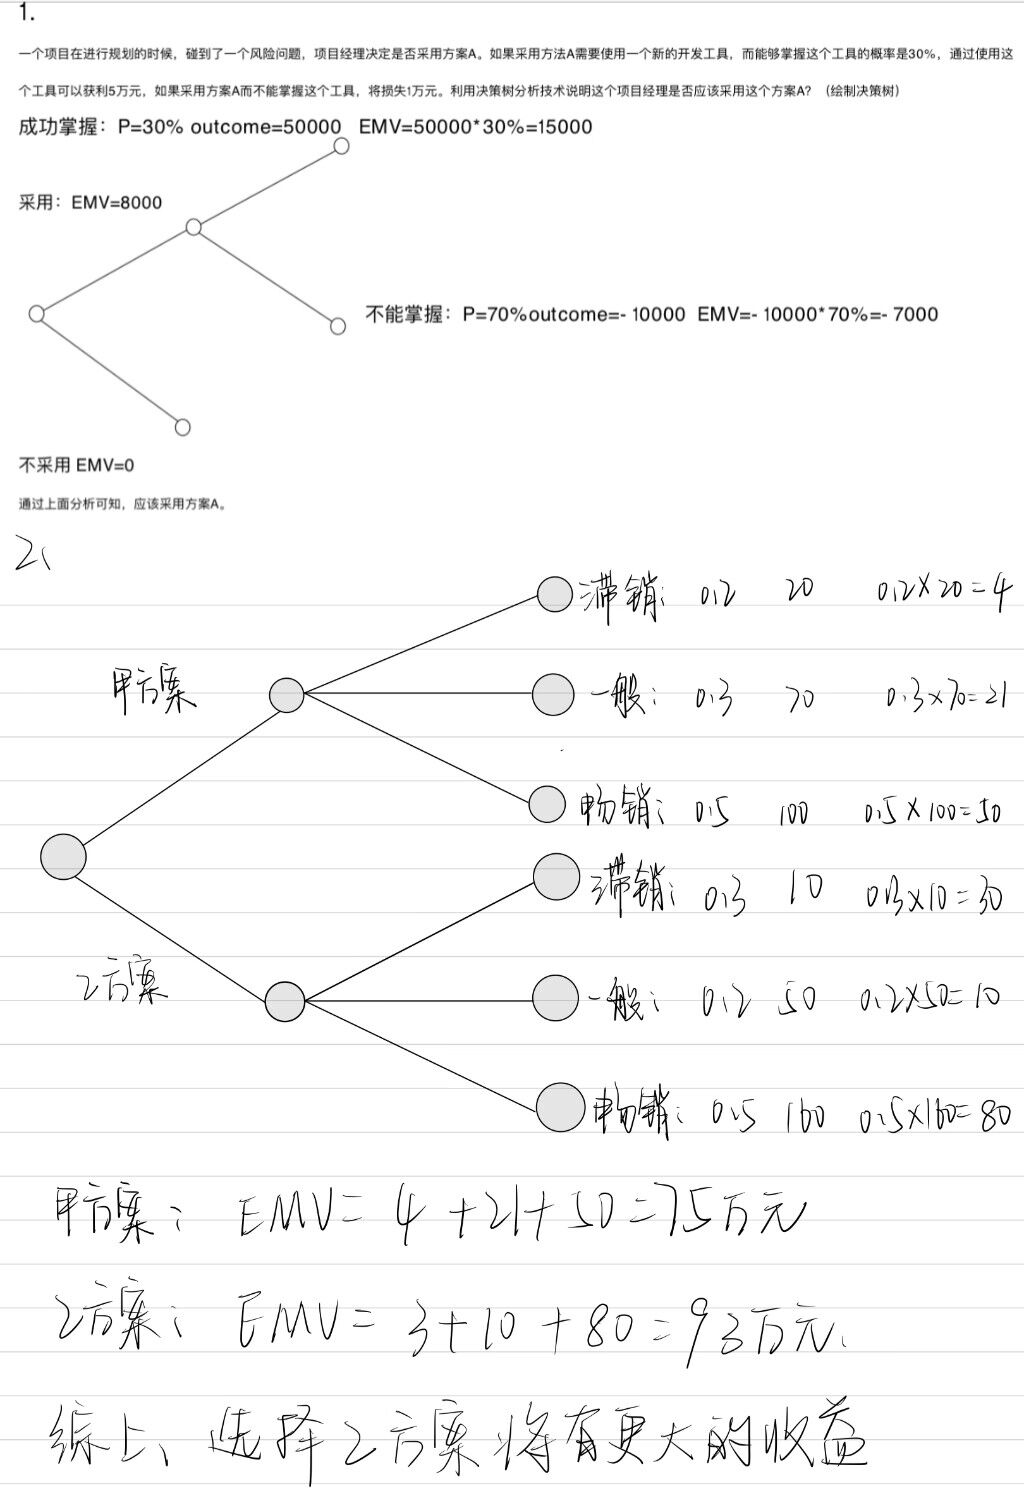 1.
一个项目在进行规划的时候，碰到了一个风险问题，项目经理决定是否采用方案A。如果采用方法A需要使用一个新的开发工具，而能够掌握这个工具的概率是30%，通过使用这
个工具可以获利5万元，如果采用方案A而不能掌握这个工具，将损失1万元。利用决策树分析技术说明这个项目经理是否应该采用这个方案A？（绘制决策树）
成功掌握：P=30% outcome=50000 EMV=50000*30%=15000
采用：EMV=8000
不能掌握：P=70%outcome=- 10000 EMV=- 10000*70%=- 7000
不采用 EMV=0
通过上面分析可知，应该采用方案A。
2、
滞销: 0.2 20 0.2×20=4
甲方案
一般: 0.3 70 0.3×70=21
畅销: 0.5 100 0.5×100=50
滞销: 0.3 10 0.3×10=30
乙方案
一般: 0.2 50 0.2×50=10
畅销: 0.5 160 0.5×160=80
甲方案: EMV= 4+21+50=75万元
乙方案: EMV= 3+10+80=93万元.
综上、选择乙方案将有更大的收益